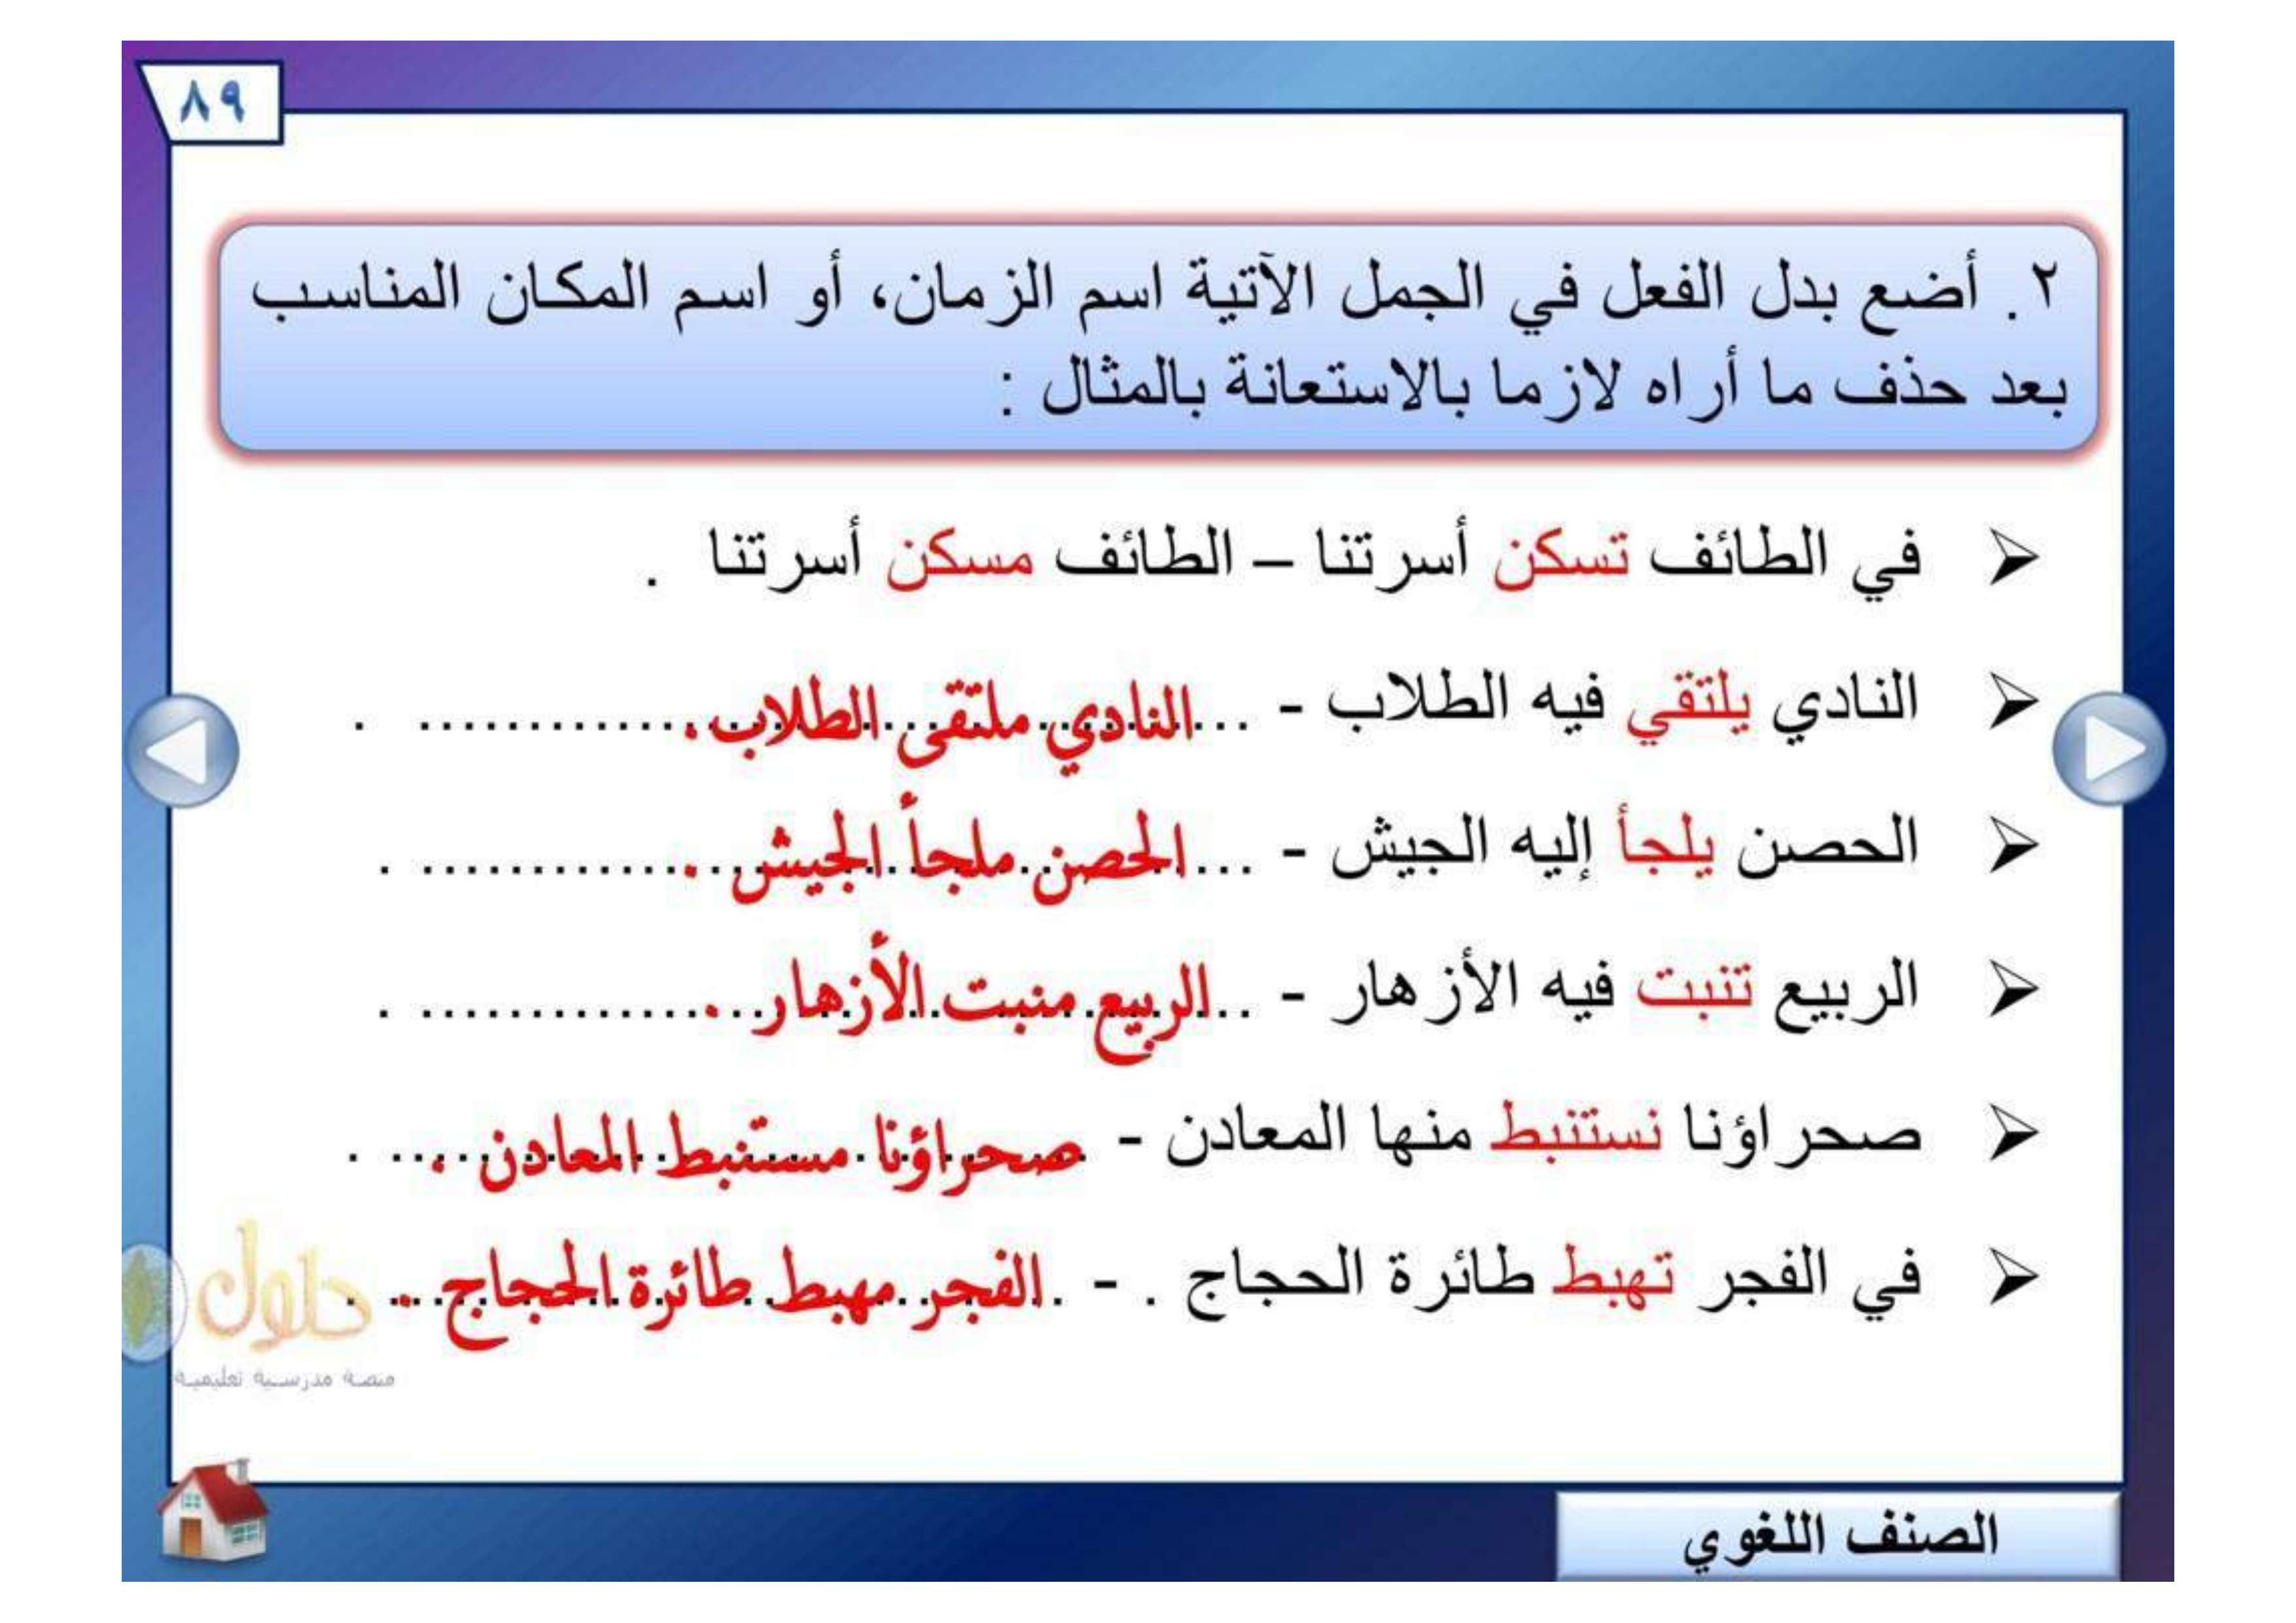 ٨٩
٢. أضع بدل الفعل في الجمل الآتية اسم الزمان، أو اسم المكان المناسب
بعد حذف ما أراه لازما بالاستعانة بالمثال :
في الطائف تسكن أسرتنا – الطائف مسكن أسرتنا .
النادي يلتقي فيه الطلاب - النادي ملتقى الطلاب. .
الحصن يلجأ إليه الجيش - الحصن ملجأ الجيش . .
الربيع تنبت فيه الأزهار - الربيع منبت الأزهار . .
صحراؤنا نستنبط منها المعادن - صحراؤنا مستنبط المعادن . .
في الفجر تهبط طائرة الحجاج . - الفجر مهبط طائرة الحجاج . .
حلول
منصة مدرسية تعليمية
الصنف اللغوي